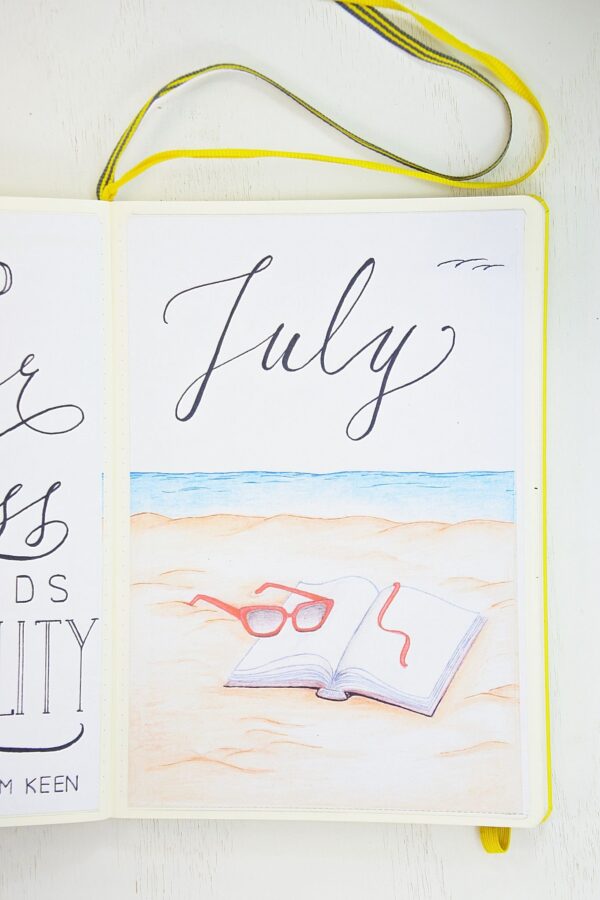 r
ss
DS
LITY
M KEEN
July